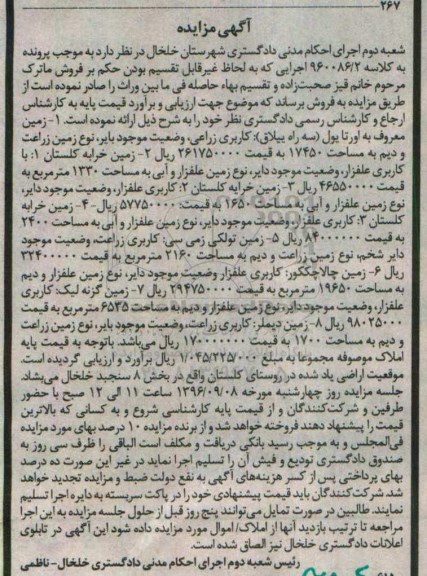 ۲۶۷
آگهی مزایده
شعبه دوم اجرای احکام مدنی دادگستری شهرستان خلخال در نظر دارد به موجب پرونده
به کلاسه ۹۶۰۰۸۶/۲ اجرایی که به لحاظ غیرقابل تقسیم بودن حکم بر فروش ماترک
مرحوم خانم قیز صحبت‌زاده و تقسیم بهاء حاصله فی ما بین وراث را صادر نموده است از
طریق مزایده به فروش برساند که موضوع جهت ارزیابی و برآورد قیمت پایه به کارشناس
ارجاع و کارشناس رسمی دادگستری نظر خود را به شرح ذیل ارائه نموده است. ۱- زمین
معروف به اورتا یول (سه راه ییلاق): کاربری زراعی، وضعیت موجود بایر، نوع زمین زراعت
و دیم به مساحت ۱۷۴۵۰ به قیمت ۲۶۱۷۵۰۰۰۰ ریال ۲- زمین خرابه کلستان ۱: با
کاربری علفزار، وضعیت موجود دایر، نوع زمین علفزار و آبی به مساحت ۱۳۳۰ مترمربع به
قیمت ۴۶۵۵۰۰۰۰ ریال ۳- زمین خرابه کلستان ۲: کاربری علفزار، وضعیت موجود دایر،
نوع زمین علفزار و آبی به مساحت ۱۶۵۰ به قیمت: ۵۷۷۵۰۰۰۰ ریال- ۴- زمین خرابه
کلستان ۳: کاربری علفزار، وضعیت موجود دایر، نوع زمین علفزار و آبی به مساحت ۲۴۰۰
به قیمت ۸۴۰۰۰۰۰۰ ریال ۵- زمین تولکی زمی سی: کاربری زراعت، وضعیت موجود
دایر شخم، نوع زمین زراعت و دیم به مساحت ۲۱۶۰ مترمربع به قیمت ۳۲۴۰۰۰۰۰
ریال ۶- زمین چالاچکگور: کاربری علفزار وضعیت موجود دایر، نوع زمین علفزار و دیم
به مساحت ۱۹۶۵۰ مترمربع به قیمت ۲۹۴۷۵۰۰۰۰ ریال ۷- زمین گزنه لیک: کاربری
علفزار، وضعیت موجود دایر، نوع زمین علفزار و دیم به مساحت ۶۵۳۵ مترمربع به قیمت
۹۸۰۲۵۰۰۰ ریال ۸- زمین دیملر: کاربری زراعت، وضعیت موجود بایر، نوع زمین زراعت
و دیم به مساحت ۱۷۰۰ به قیمت ۱۷۰۰۰۰۰۰۰ ریال می‌باشد. باتوجه به قیمت پایه
املاک موصوفه مجموعا به مبلغ ۱/۰۴۵/۲۲۵/۰۰۰ ریال برآورد و ارزیابی گردیده است.
موقعیت اراضی یاد شده در روستای کلستان واقع در بخش ۸ سنجبد خلخال می‌باشد.
جلسه مزایده روز چهارشنبه مورخه ۱۳۹۶/۰۹/۰۸ ساعت ۱۱ الی ۱۲ صبح با حضور
طرفین و شرکت‌کنندگان و از قیمت پایه کارشناسی شروع و به کسانی که بالاترین
قیمت را پیشنهاد دهند فروخته خواهد شد و از برنده مزایده ۱۰ درصد بهای مورد مزایده
فی‌المجلس و به موجب رسید بانکی دریافت و مکلف است الباقی را ظرف سی روز به
صندوق دادگستری تودیع و فیش آن را تسلیم اجرا نماید در غیر این صورت ده درصد
بهای پرداختی پس از کسر هزینه‌های آگهی به نفع دولت ضبط و مزایده تجدید خواهد
شد. شرکت‌کنندگان باید قیمت پیشنهادی خود را در پاکت سربسته به دایره اجرا تسلیم
نمایند. طالبین در صورت تمایل می‌توانند پنج روز قبل از حلول جلسه مزایده به این اجرا
مراجعه تا ترتیب بازدید آنها از املاک/ اموال مورد مزایده داده شود این آگهی در تابلوی
اعلانات دادگستری خلخال نیز الصاق شده است.
رئیس شعبه دوم اجرای احکام مدنی دادگستری خلخال- ناظمی